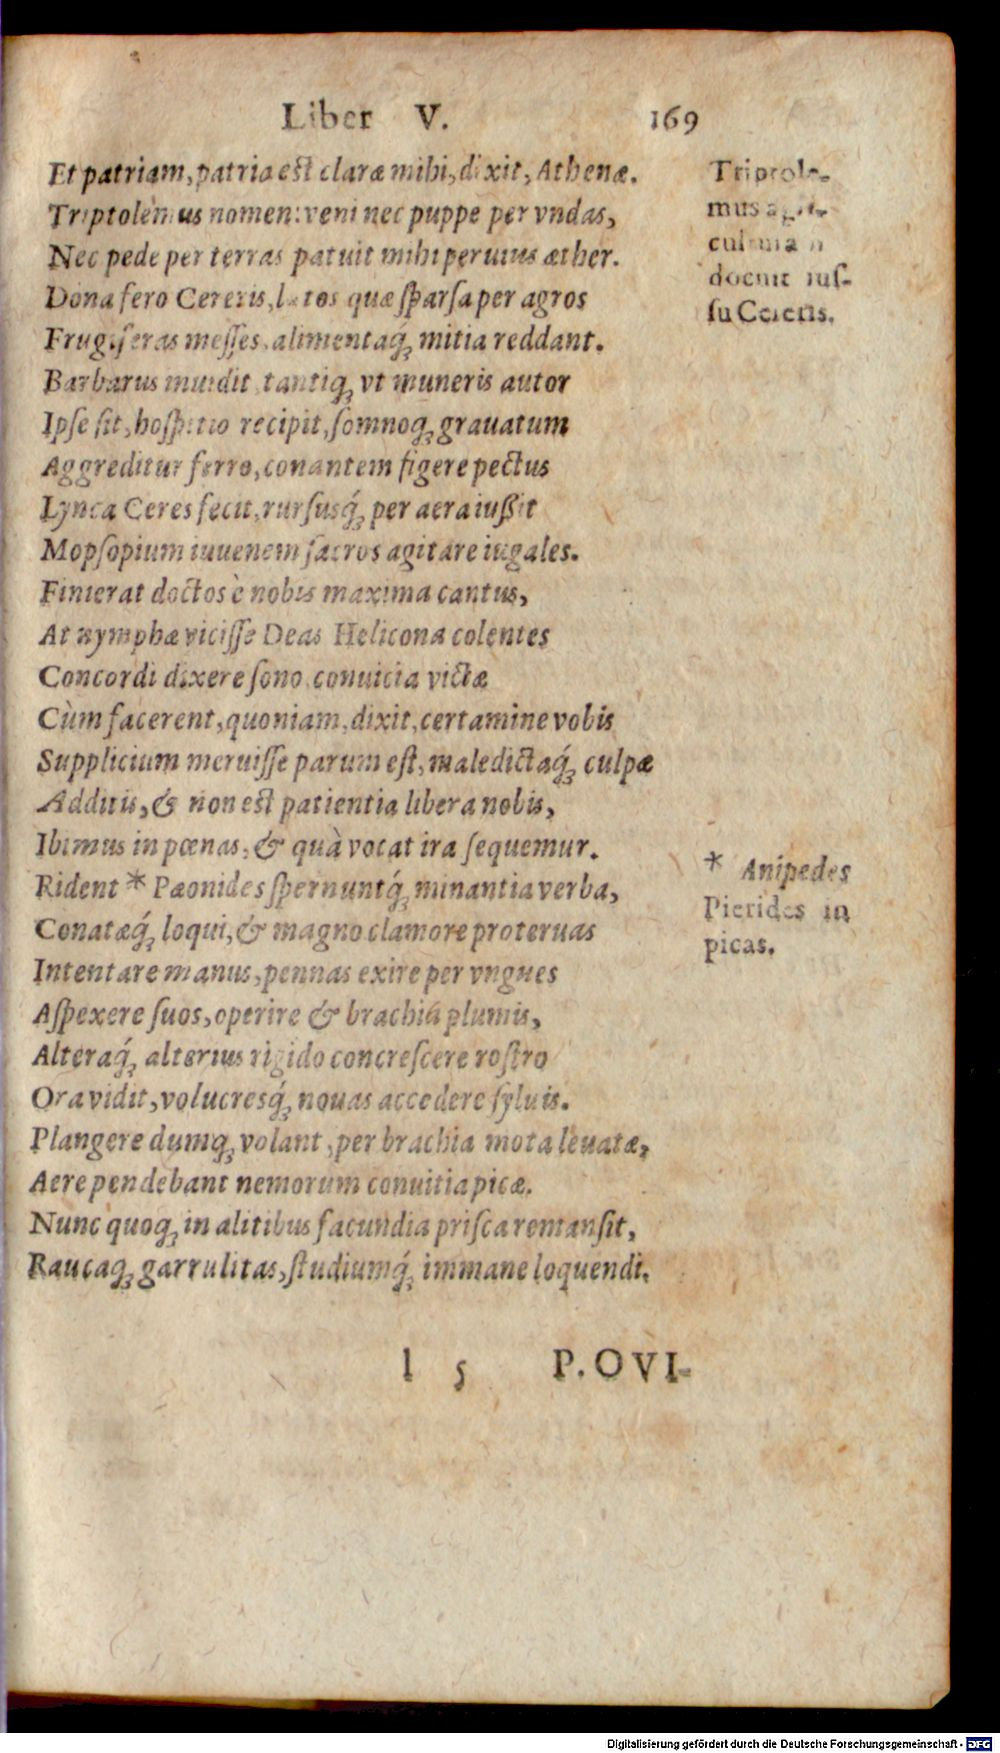 Liber V. 169
Et patriam, patria est claræ mihi, dixit, Athenæ.
Triptolemus nomen: veni nec puppe per vndas,
Nec pede per terras patuit mihi peruius æther.
Dona fero Cereris, latos quæ sparsa per agros
Frugiferas messes, alimentaq́; mitia reddant.
Barbarus inuidit, tantiq; vt muneris autor
Ipse sit, hospitio recipit, somnoq; grauatum
Aggreditur ferro, conantem figere pectus
Lynca Ceres fecit, rursusq́; per aera iussit
Mopsopium iuuenem sacros agitare iugales.
Finierat doctos è nobis maxima cantus,
At nymphæ vicisse Deas Helicona colentes
Concordi dixere sono, conuicia victæ
Cùm facerent, quoniam, dixit, certamine vobis
Supplicium meruisse parum est, maledictaq́; culpæ
Additis, & non est patientia libera nobis,
Ibimus in pœnas, & quà vocat ira sequemur.
Rident * Pæonides spernuntq́; minantia verba,
Conatæq́; loqui, & magno clamore proteruas
Intentare manus, pennas exire per vngues
Aspexere suos, operire & brachia plumis,
Alteraq́; alterius rigido concrescere rostro
Ora vidit, volucresq́; nouas accedere syluis.
Plangere dumq; volant, per brachia mota leuatæ,
Aere pendebant nemorum conuitia picæ.
Nunc quoq; in alitibus facundia prisca remansit,
Raucaq; garrulitas, studiumq́; immane loquendi.
Triptole-
mus agri-
culturam
docuit ius-
su Cereris.
* Anipedes
Pierides in
picas.
l 5 P. OVI-
Digitalisierung gefördert durch die Deutsche Forschungsgemeinschaft - DFG